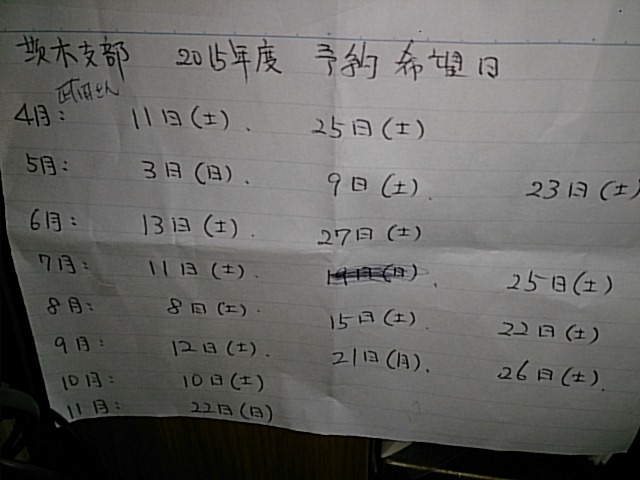 茨木支部 2015年度 予約希望日
4月: 11日(土). 25日(土)
5月: 3日(日). 9日(土). 23日(土)
6月: 13日(土). 27日(土)
7月: 11日(土). 19日(日). 25日(土)
8月: 8日(土). 15日(土). 22日(土)
9月: 12日(土). 21日(月). 26日(土).
10月: 10日(土)
11月: 22日(日)